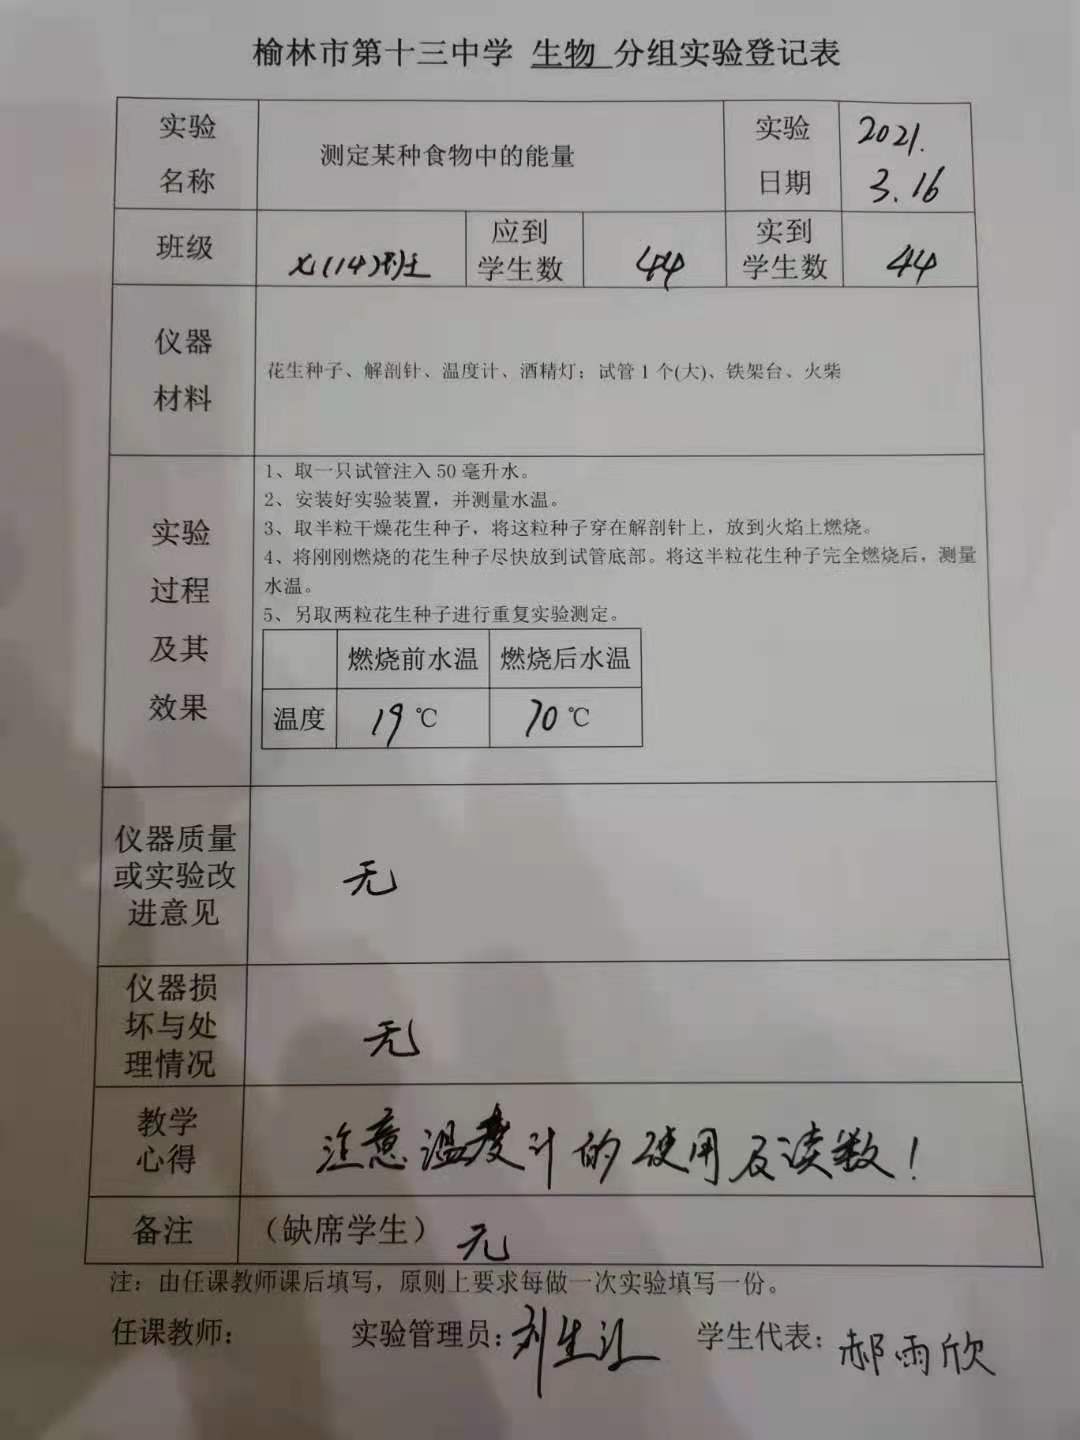 榆林市第十三中学 生物 分组实验登记表
实验名称 测定某种食物中的能量 实验日期 2021.3.16
班级 七(14)班 应到学生数 44 实到学生数 44
仪器材料 花生种子、解剖针、温度计、酒精灯;试管1个(大)、铁架台、火柴
实验过程及其效果
1、取一只试管注入50毫升水。
2、安装好实验装置,并测量水温。
3、取半粒干燥花生种子,将这粒种子穿在解剖针上,放到火焰上燃烧。
4、将刚刚燃烧的花生种子尽快放到试管底部。将这半粒花生种子完全燃烧后,测量
水温。
5、另取两粒花生种子进行重复实验测定。
燃烧前水温 燃烧后水温
温度 19℃ 70℃
仪器质量或实验改进意见 无
仪器损坏与处理情况 无
教学心得 注意温度计的使用及读数!
备注 (缺席学生) 无
注:由任课教师课后填写,原则上要求每做一次实验填写一份。
任课教师: 实验管理员:刘生 学生代表:郝雨欣